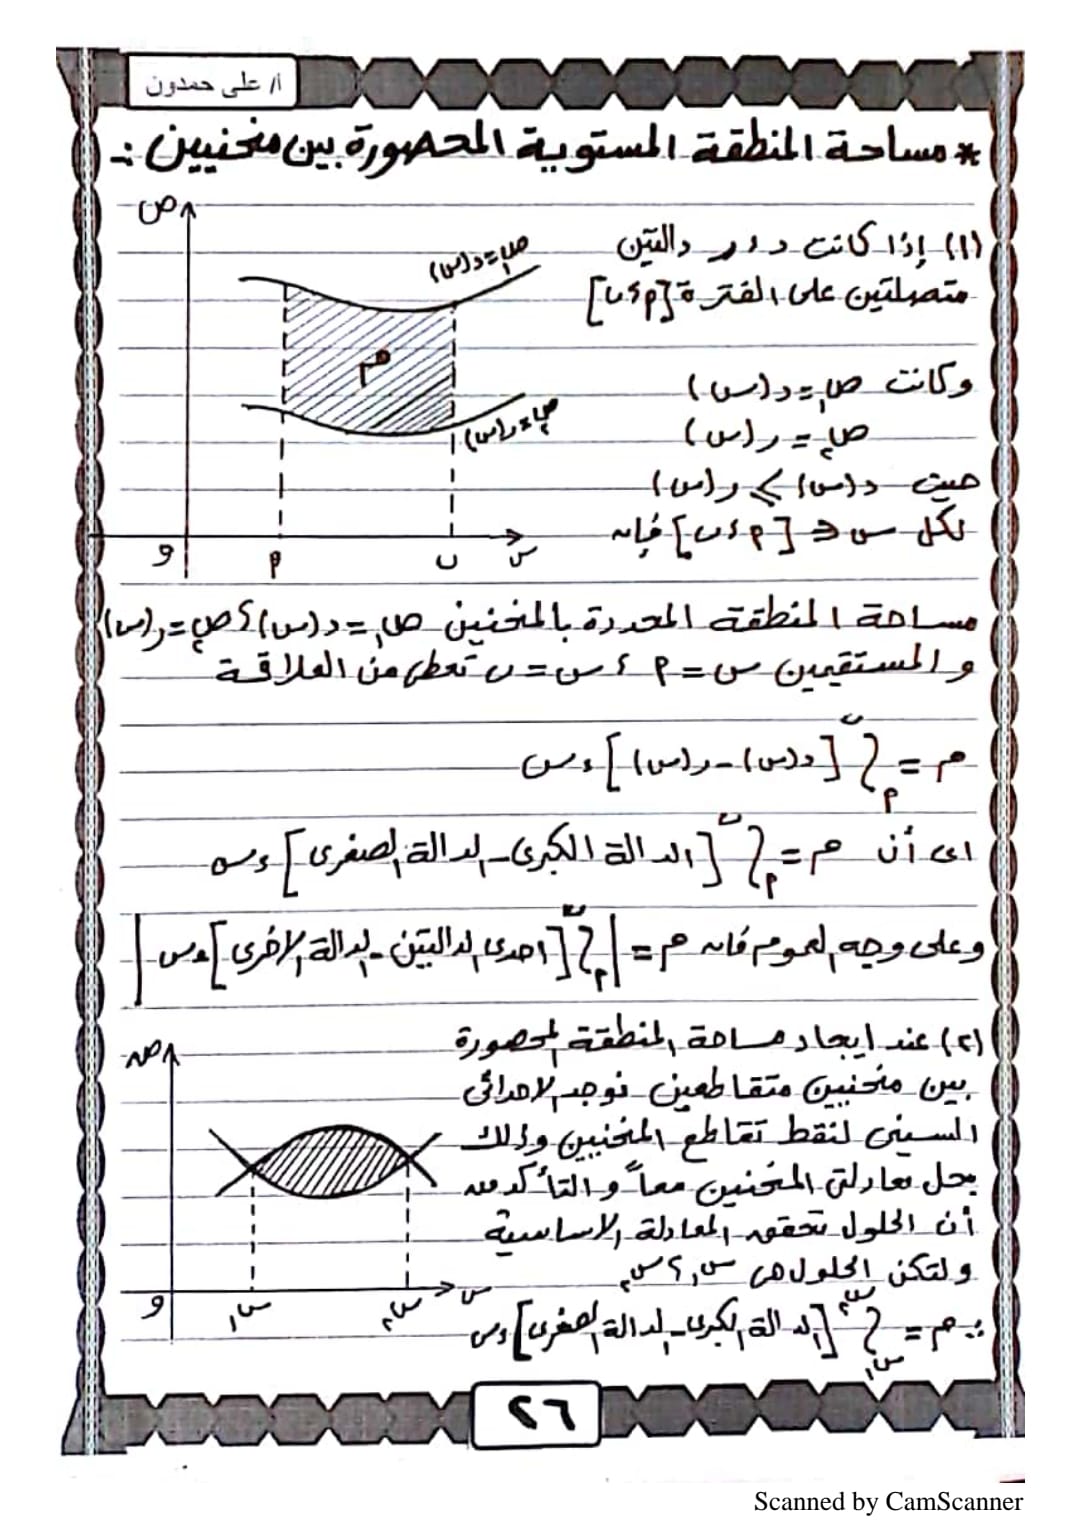 أ/ على حمدون
* مساحة المنطقة المستوية المحصورة بين منحنيين :-
ص
(١) إذا كانت د ، ر دالتين
ص١ = د(س)
متصلتين على الفترة [م ، ب]
م
وكانت ص١ = د(س)
ص٢ = ر(س)
ص٢ = ر(س)
حيث د(س) ≥ ر(س)
لكل س ∈ [م ، ب] فإن
و م ب س
مساحة المنطقة المحددة بالمنحنين ص١ = د(س) ، ص٢ = ر(س)
والمستقيمين س = م ، س = ب تعطى من العلاقة
م = م∫ب [د(س) - ر(س)] ءس
اى أن م = م∫ب [الدالة الكبرى - الدالة الصغرى] ءس
وعلى وجه العموم فان م = | م∫ب [احدى الدالتين - الدالة الاخرى] ءس |
(٢) عند ايجاد مساحة المنطقة المحصورة
ص
بين منحنيين متقاطعين نوجد الاحداثى
السينى لنقط تقاطع المنحنيين وذلك
بحل معادلتى المنحنيين معاً والتأكد من
أن الحلول تحقق المعادلة الاساسية
ولتكن الحلول هى س١ ، س٢
و س١ س٢ س
∴ م = س١∫س٢ [الدالة الكبرى - الدالة الصغرى] ءس
٢٦
Scanned by CamScanner